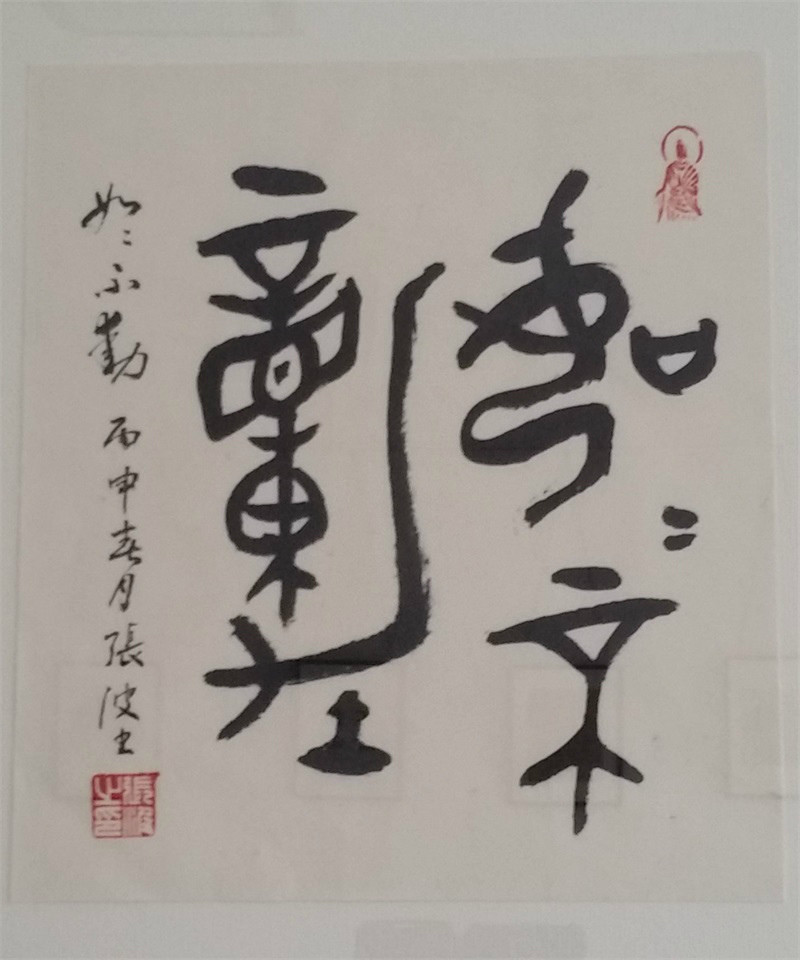 如〻不
動
如〻不動 丙申春月 張波书
張波之印